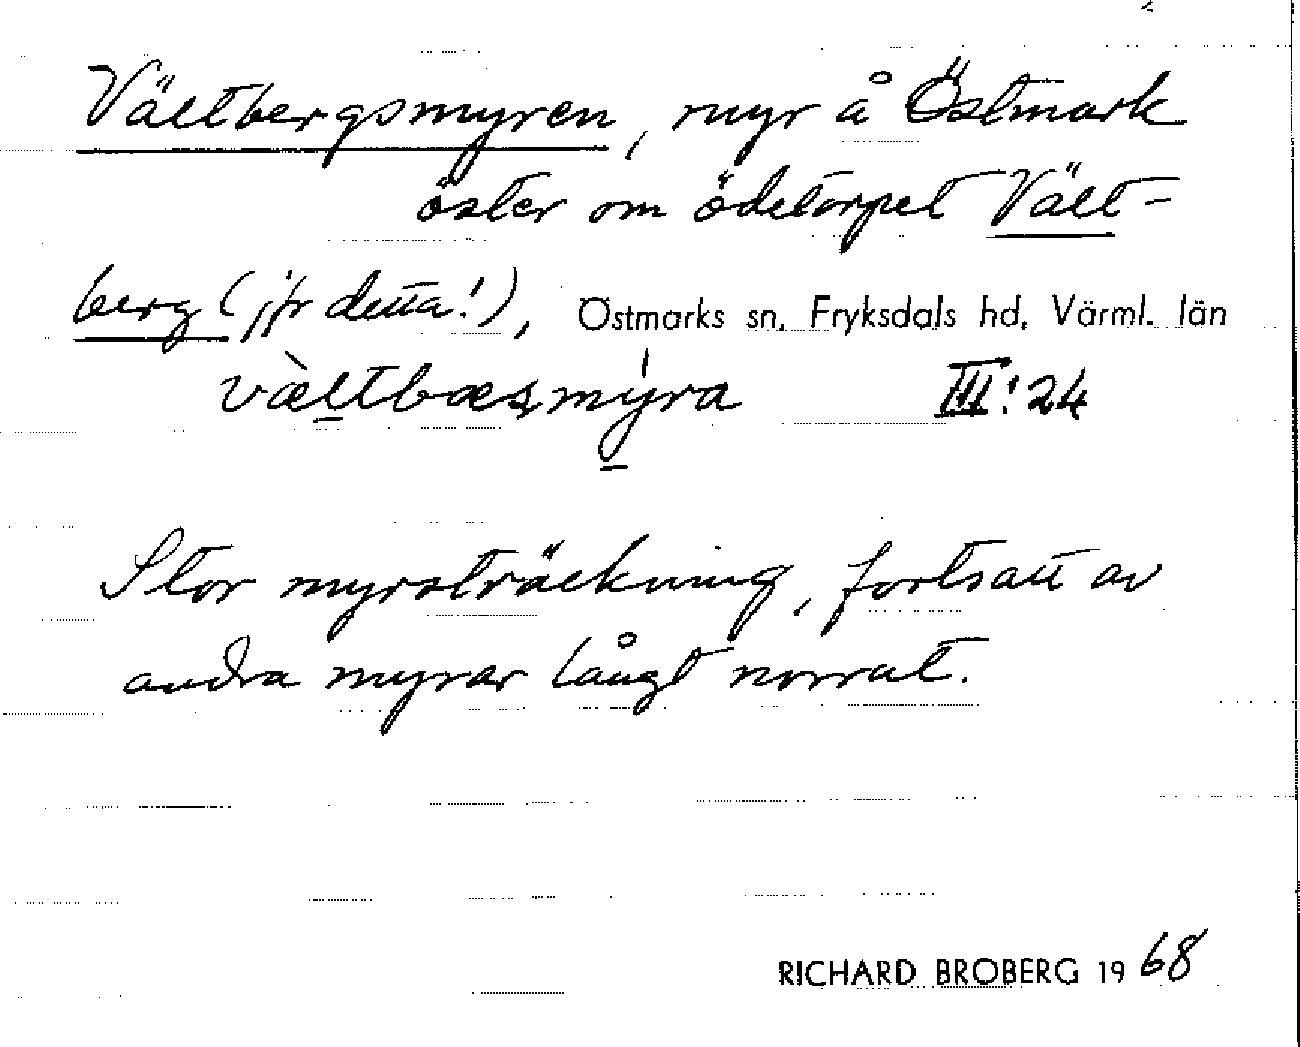 Vältbergsmyren, myr å Östmark
öster om ödetorpet Vält-
berg (jfr detta!), Östmarks sn, Fryksdals hd, Värml. län
væ̀ltbæsmýra III:24
Stor myrsträckning, fortsatt av
andra myrar långt norrut.
RICHARD BROBERG 1968